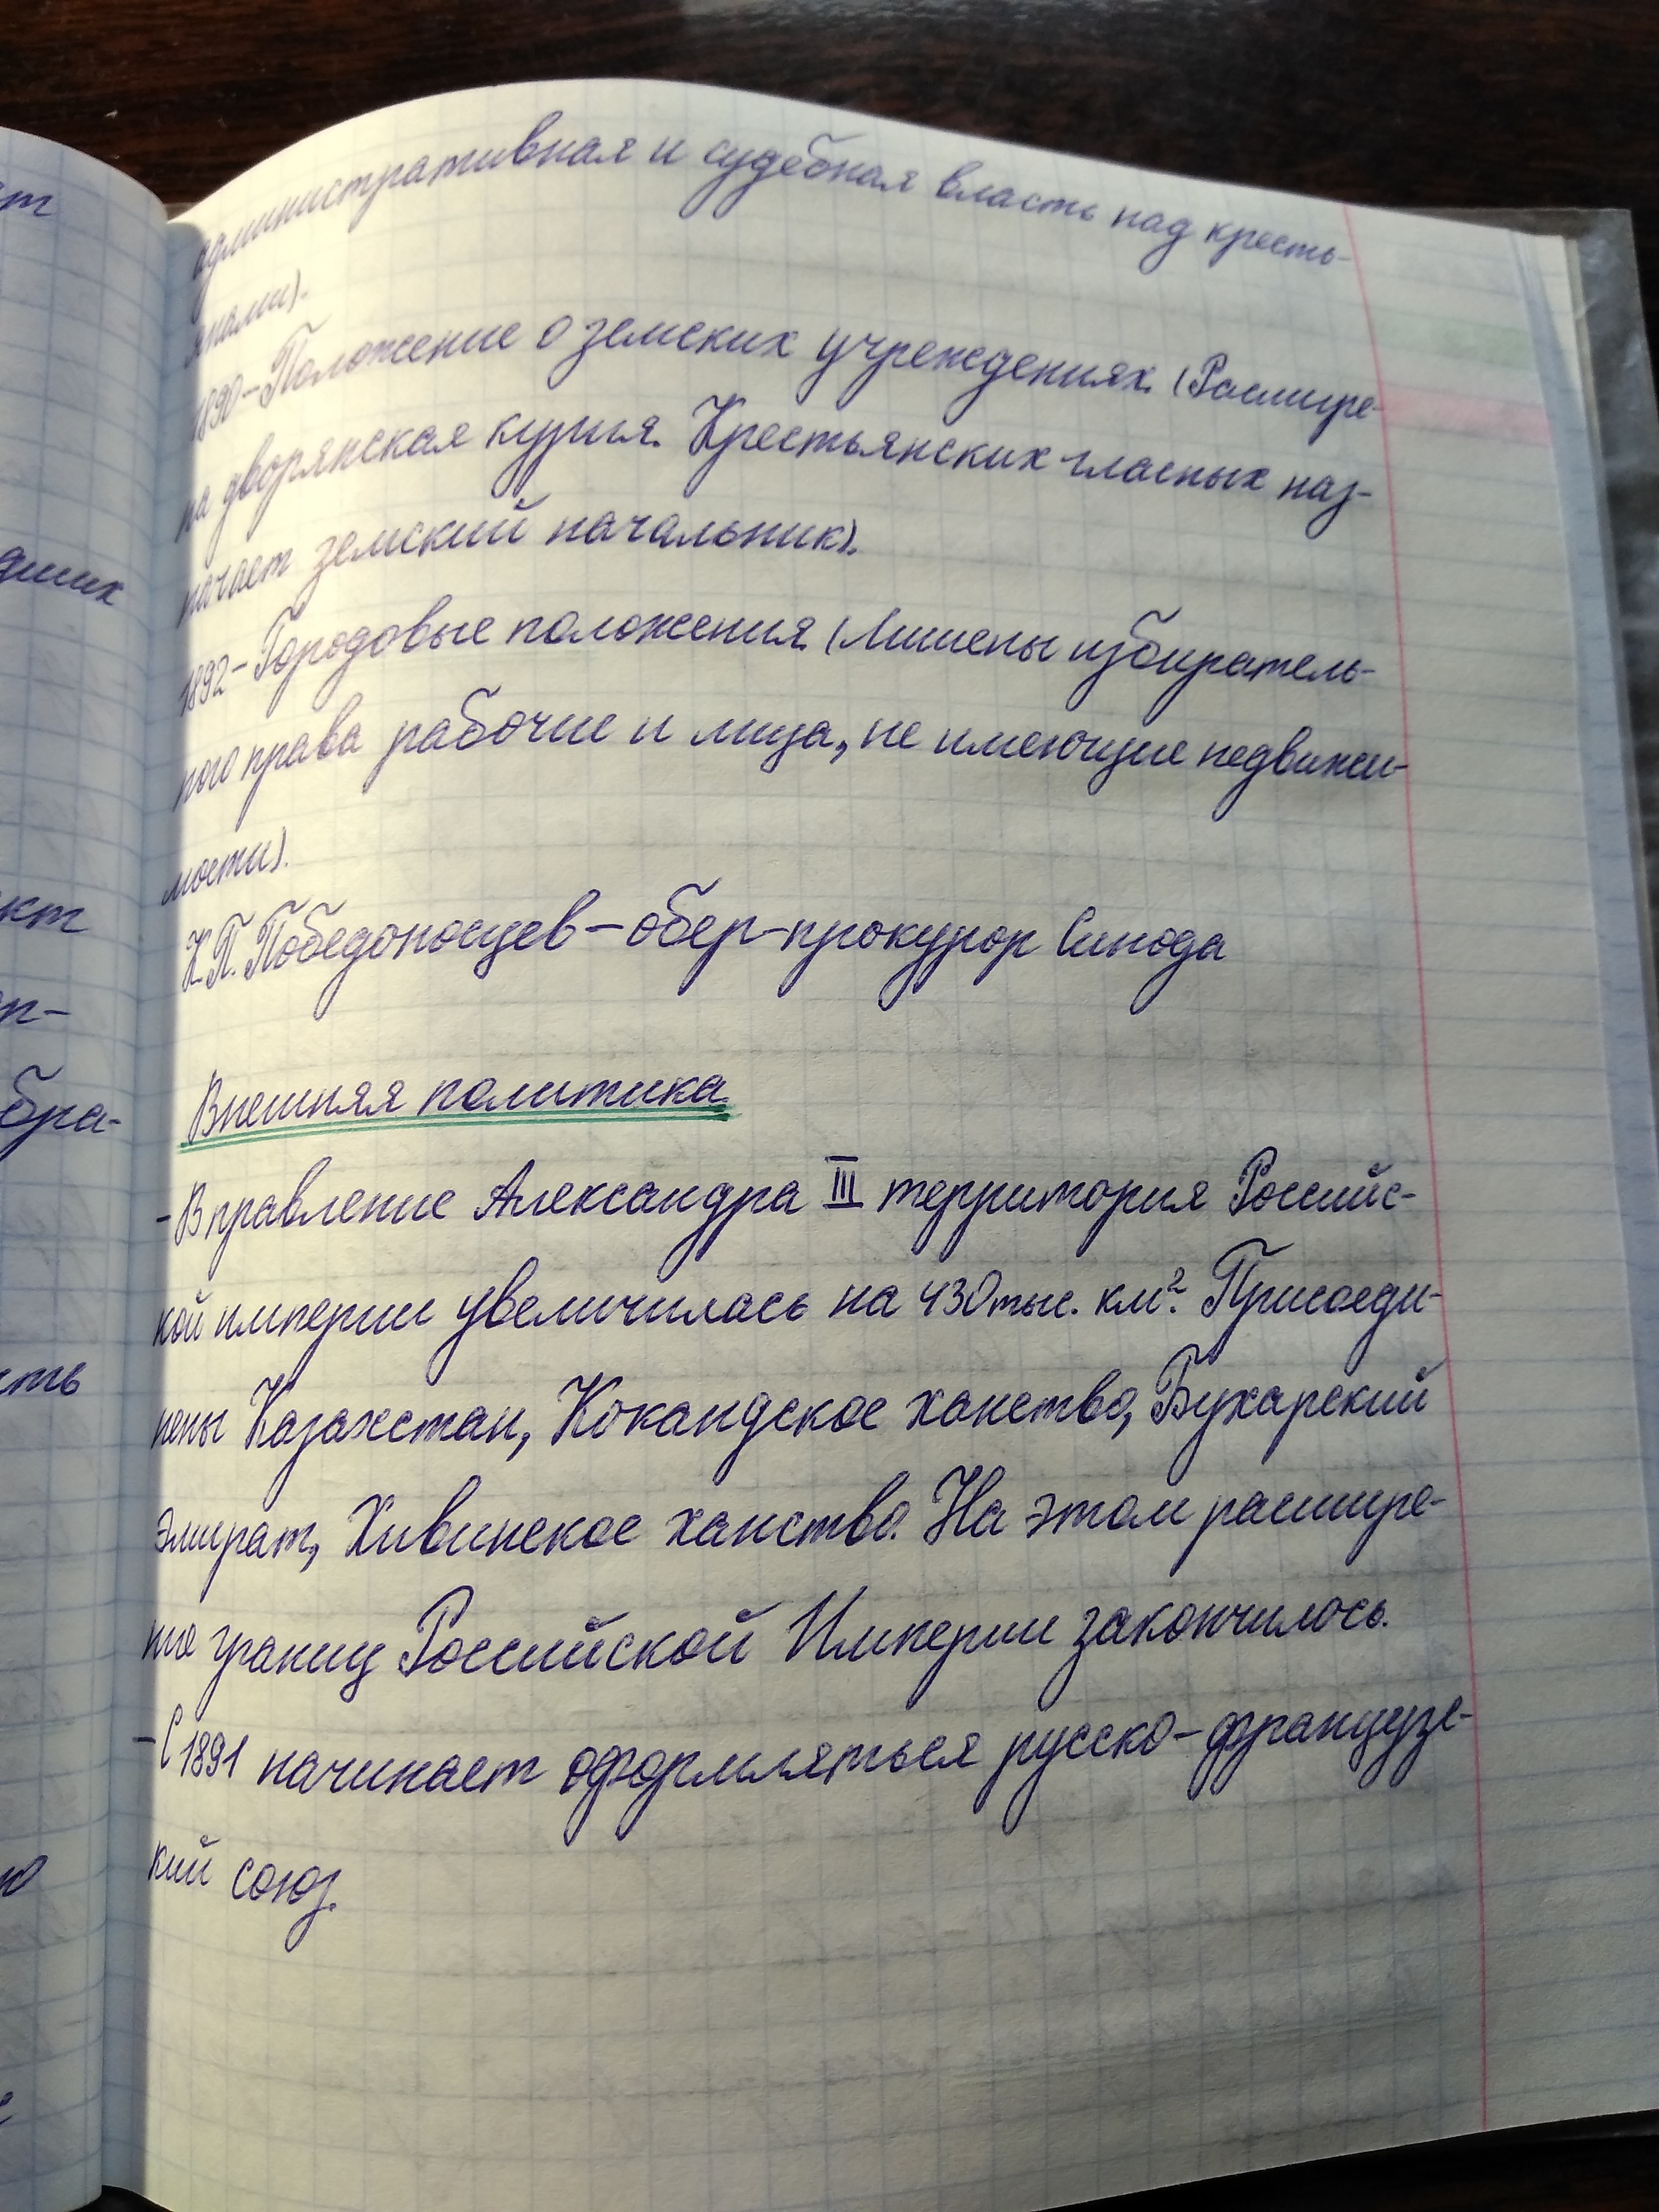 административная и судебная власть над кресть-
янами).
1890-Положение о земских учреждениях. (Расшире-
на дворянская курия. Крестьянских гласных наз-
начает земский начальник).
1892-Городовые положения (Лишены избиратель-
ного права рабочие и лица, не имеющие недвижи-
мости).
К.П. Победоносцев - обер-прокурор Синода
Внешняя политика.
-В правление Александра III территория Российс-
кой империи увеличилась на 430 тыс. км². Присоеди-
нены Казахстан, Кокандское ханство, Бухарский
эмират, Хивинское ханство. На этом расшире-
ние границ Российской Империи закончилось.
-С 1891 начинает оформляться русско-французс-
кий союз.